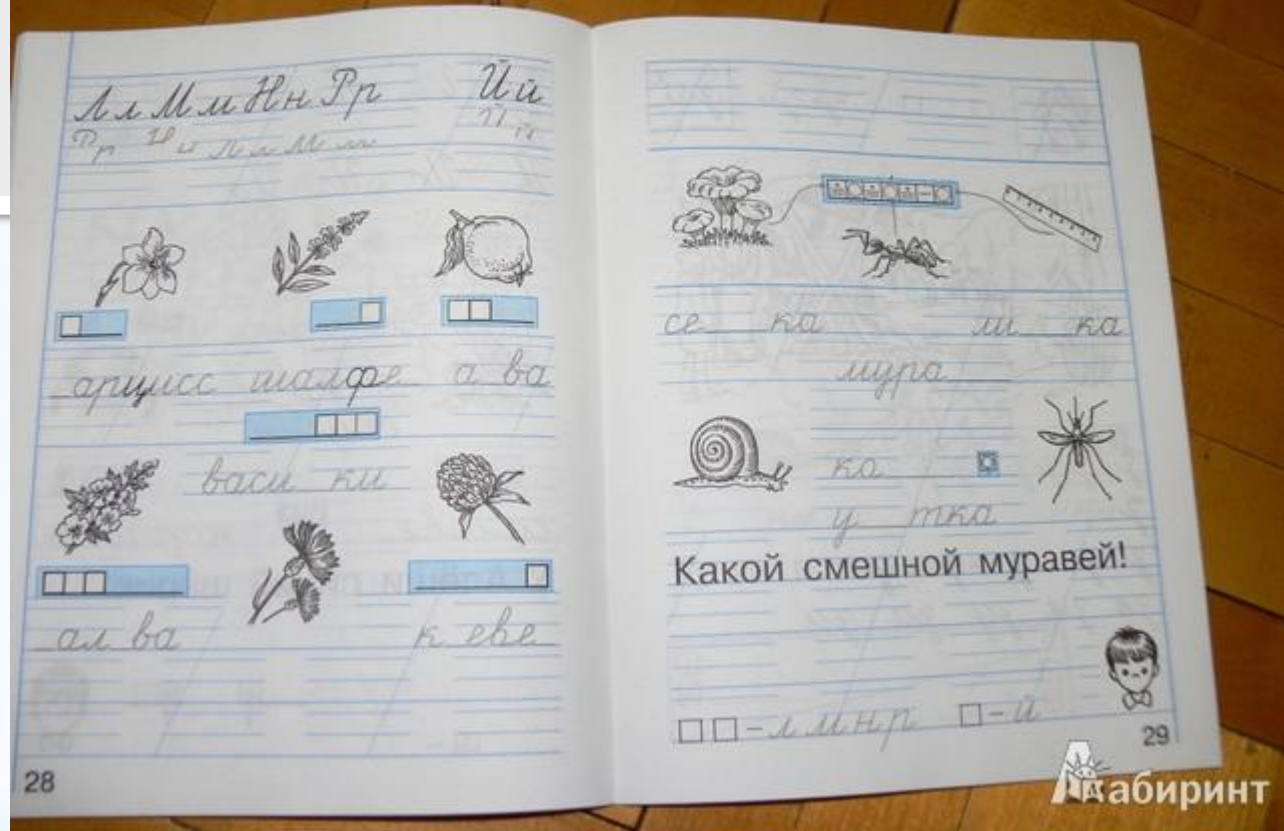 Лл Мм Нн Рр Йй
Рр Нн Лл Мм Йй
_арцисс шалфе_ а_ва
васи_ки
ал_ва к_еве_
28
се__ка ли__ка
мура__
ка__
у_тка
Какой смешной муравей!
□□-л м н р □-й
29
Лабиринт